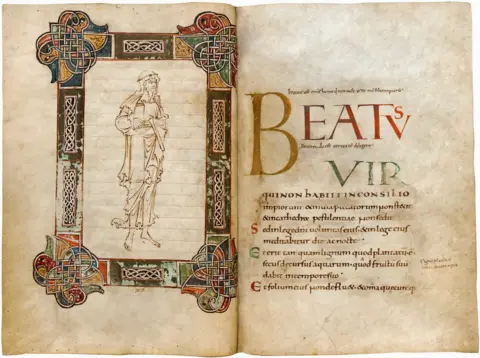 BEATVS
VIR
QUI NON HABIIT IN CONSILIO
impiorum & in uia peccatorum non stetit
& in cathedra pestilentiae non sedit
Sed in lege dni uoluntas eius & in lege eius
meditabitur die ac nocte
Et erit tam quam lignum quod plantatu e
secus decursus aquarum quod fructu suu
dabit in tempore suo
Et folium eius non defluet & omnia quaecumq